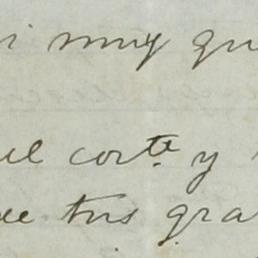 i muy qu
el corte. y
ee tus gra